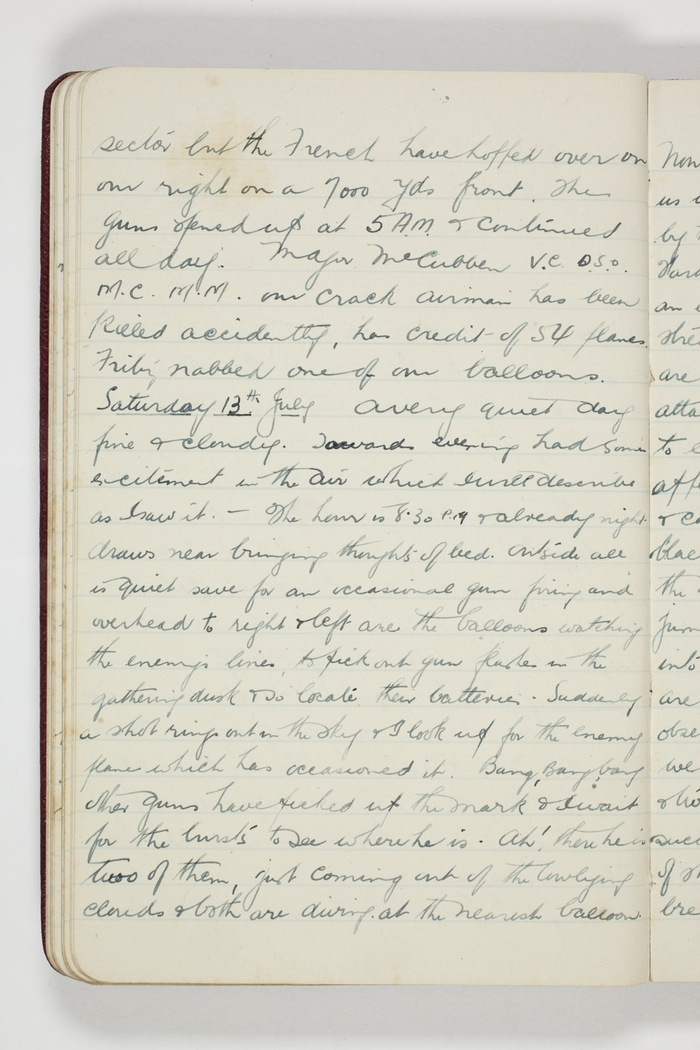 sector but the French have hopped over on
our right on a 7000 yds front. The
guns opened up at 5 A.M. & continued
all day. Major McCubben V.C. D.S.O.
M.C. M.M. our crack airman has been
killed accidently, has credit of 54 planes.
Fritz nabbed one of our balloons.
Saturday 13th July a very quiet day
fine & cloudy. Towards evening had some
excitement in the air which I will describe
as I saw it. — The hour is 8.30 P.M & already night
draws near bringing thoughts of bed. Outside all
is quiet save for an occasional gun firing and
overhead to right & left are the balloons watching
the enemys lines, to pick out gun flashes in the
gathering dusk & so locate their batteries. Suddenly
a shot rings out in the sky & I look up for the enemy
plane which has occasioned it. Bang, Bang bang
other guns have picked up the mark & I wait
for the bursts to see where he is. Ah! there he is
two of them, just coming out of the lowlying
clouds & both are diving at the nearest balloon.
Non
us
by
an
are
atta
to
& c
the
into
are
obse
we
succ
of
bre